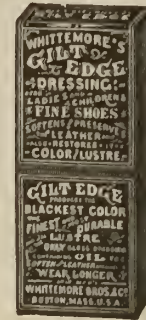 WHITTEMORE'S
GILT
EDGE
DRESSING
FOR
LADIES AND CHILDRENS
FINE SHOES
SOFTENS PRESERVES
LEATHER
ALSO RESTORES ITS
COLOR/LUSTRE
GILT EDGE
PRODUCES THE
BLACKEST COLOR
FINEST AND DURABLE
LUSTRE
ONLY DRESSING
CONTAINING OIL
SOFTEN LEATHER
WEAR LONGER
WHITTEMORE BROS. & CO
BOSTON, MASS. U.S.A.